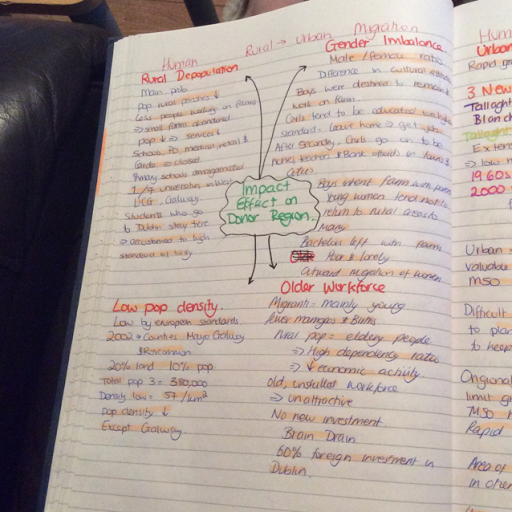 Human Rural → Urban Migration
Rural Depopulation
Main prob
pop rural parishes ↓
Less people working on farms
⇒ small farms abandoned
pop ↓ ⇒ services ↓
Schools, PO, medical, retail &
Garda ⇒ closed
Primary schools amalgamated
1 / universities in West
UCG, Galway
Students who go
to Dublin stay there
⇒ accustomed to high
standard of living
Gender Imbalance
Male / female ratio
Difference in cultural
Boys were destined to remain &
work on farm.
Girls tend to be educated to
standard - leave home ⇒ get job
After Secondary, Girls go on to be
nurse, teacher & Bank officials in towns &
Cities
Boys inherit farm with
Young women tend not to
return to rural areas to
Marry
Bachelors left with farm
Poor & lonely
Outward migration of women
Impact
Effect on
Donor Region.
Low pop density.
Low by european standards
2002 → Counties Mayo Galway
& Roscommon
20% land 10% pop
Total pop 3 = 380,000
Density low = 57/km²
pop density ↓
Except Galway
Older Workforce
Migrants - mainly young
fewer marriages & Births
Rural pop = elderly people
⇒ High dependency ratio
⇒ ↓ economic activity.
Old, unskilled workforce
⇒ unattractive
No new investment
Brain Drain
60% foreign investment in
Dublin.
Hum
Urban
Rapid gr
3 New
Tallaght
Blanch
Tallaght
Exten
⇒ low
1960s
2000
Urban
valuable
MSO
Difficult
to plan
to keep
Ongional
limit g
MSO
Rapid
Area of
in other